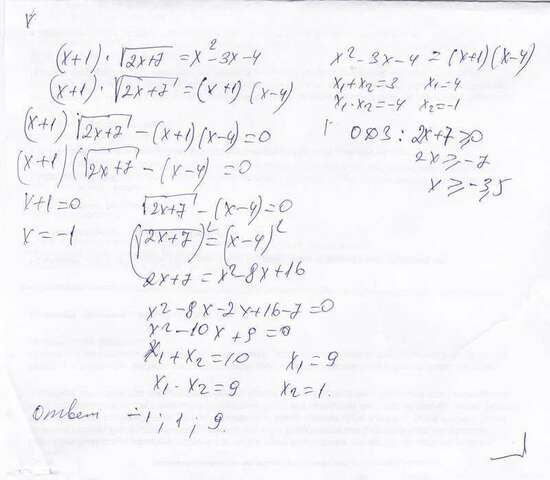 V
(x+1)·√2x+7 = x²-3x-4
(x+1)·√2x+7 = (x+1)(x-4)
(x+1)√2x+7 - (x+1)(x-4)=0
(x+1)(√2x+7 - (x-4)=0
x+1=0 √2x+7 - (x-4)=0
x=-1 (√2x+7)²=(x-4)²
2x+7 = x²-8x+16
x²-8x-2x+16-7=0
x²-10x+9=0
x₁+x₂=10 x₁=9
x₁·x₂=9 x₂=1.
Ответ -1; 1; 9.
x²-3x-4=(x+1)(x-4)
x₁+x₂=3 x₁=4
x₁·x₂=-4 x₂=-1
ОДЗ: 2x+7≥0
2x≥-7
x≥-3,5